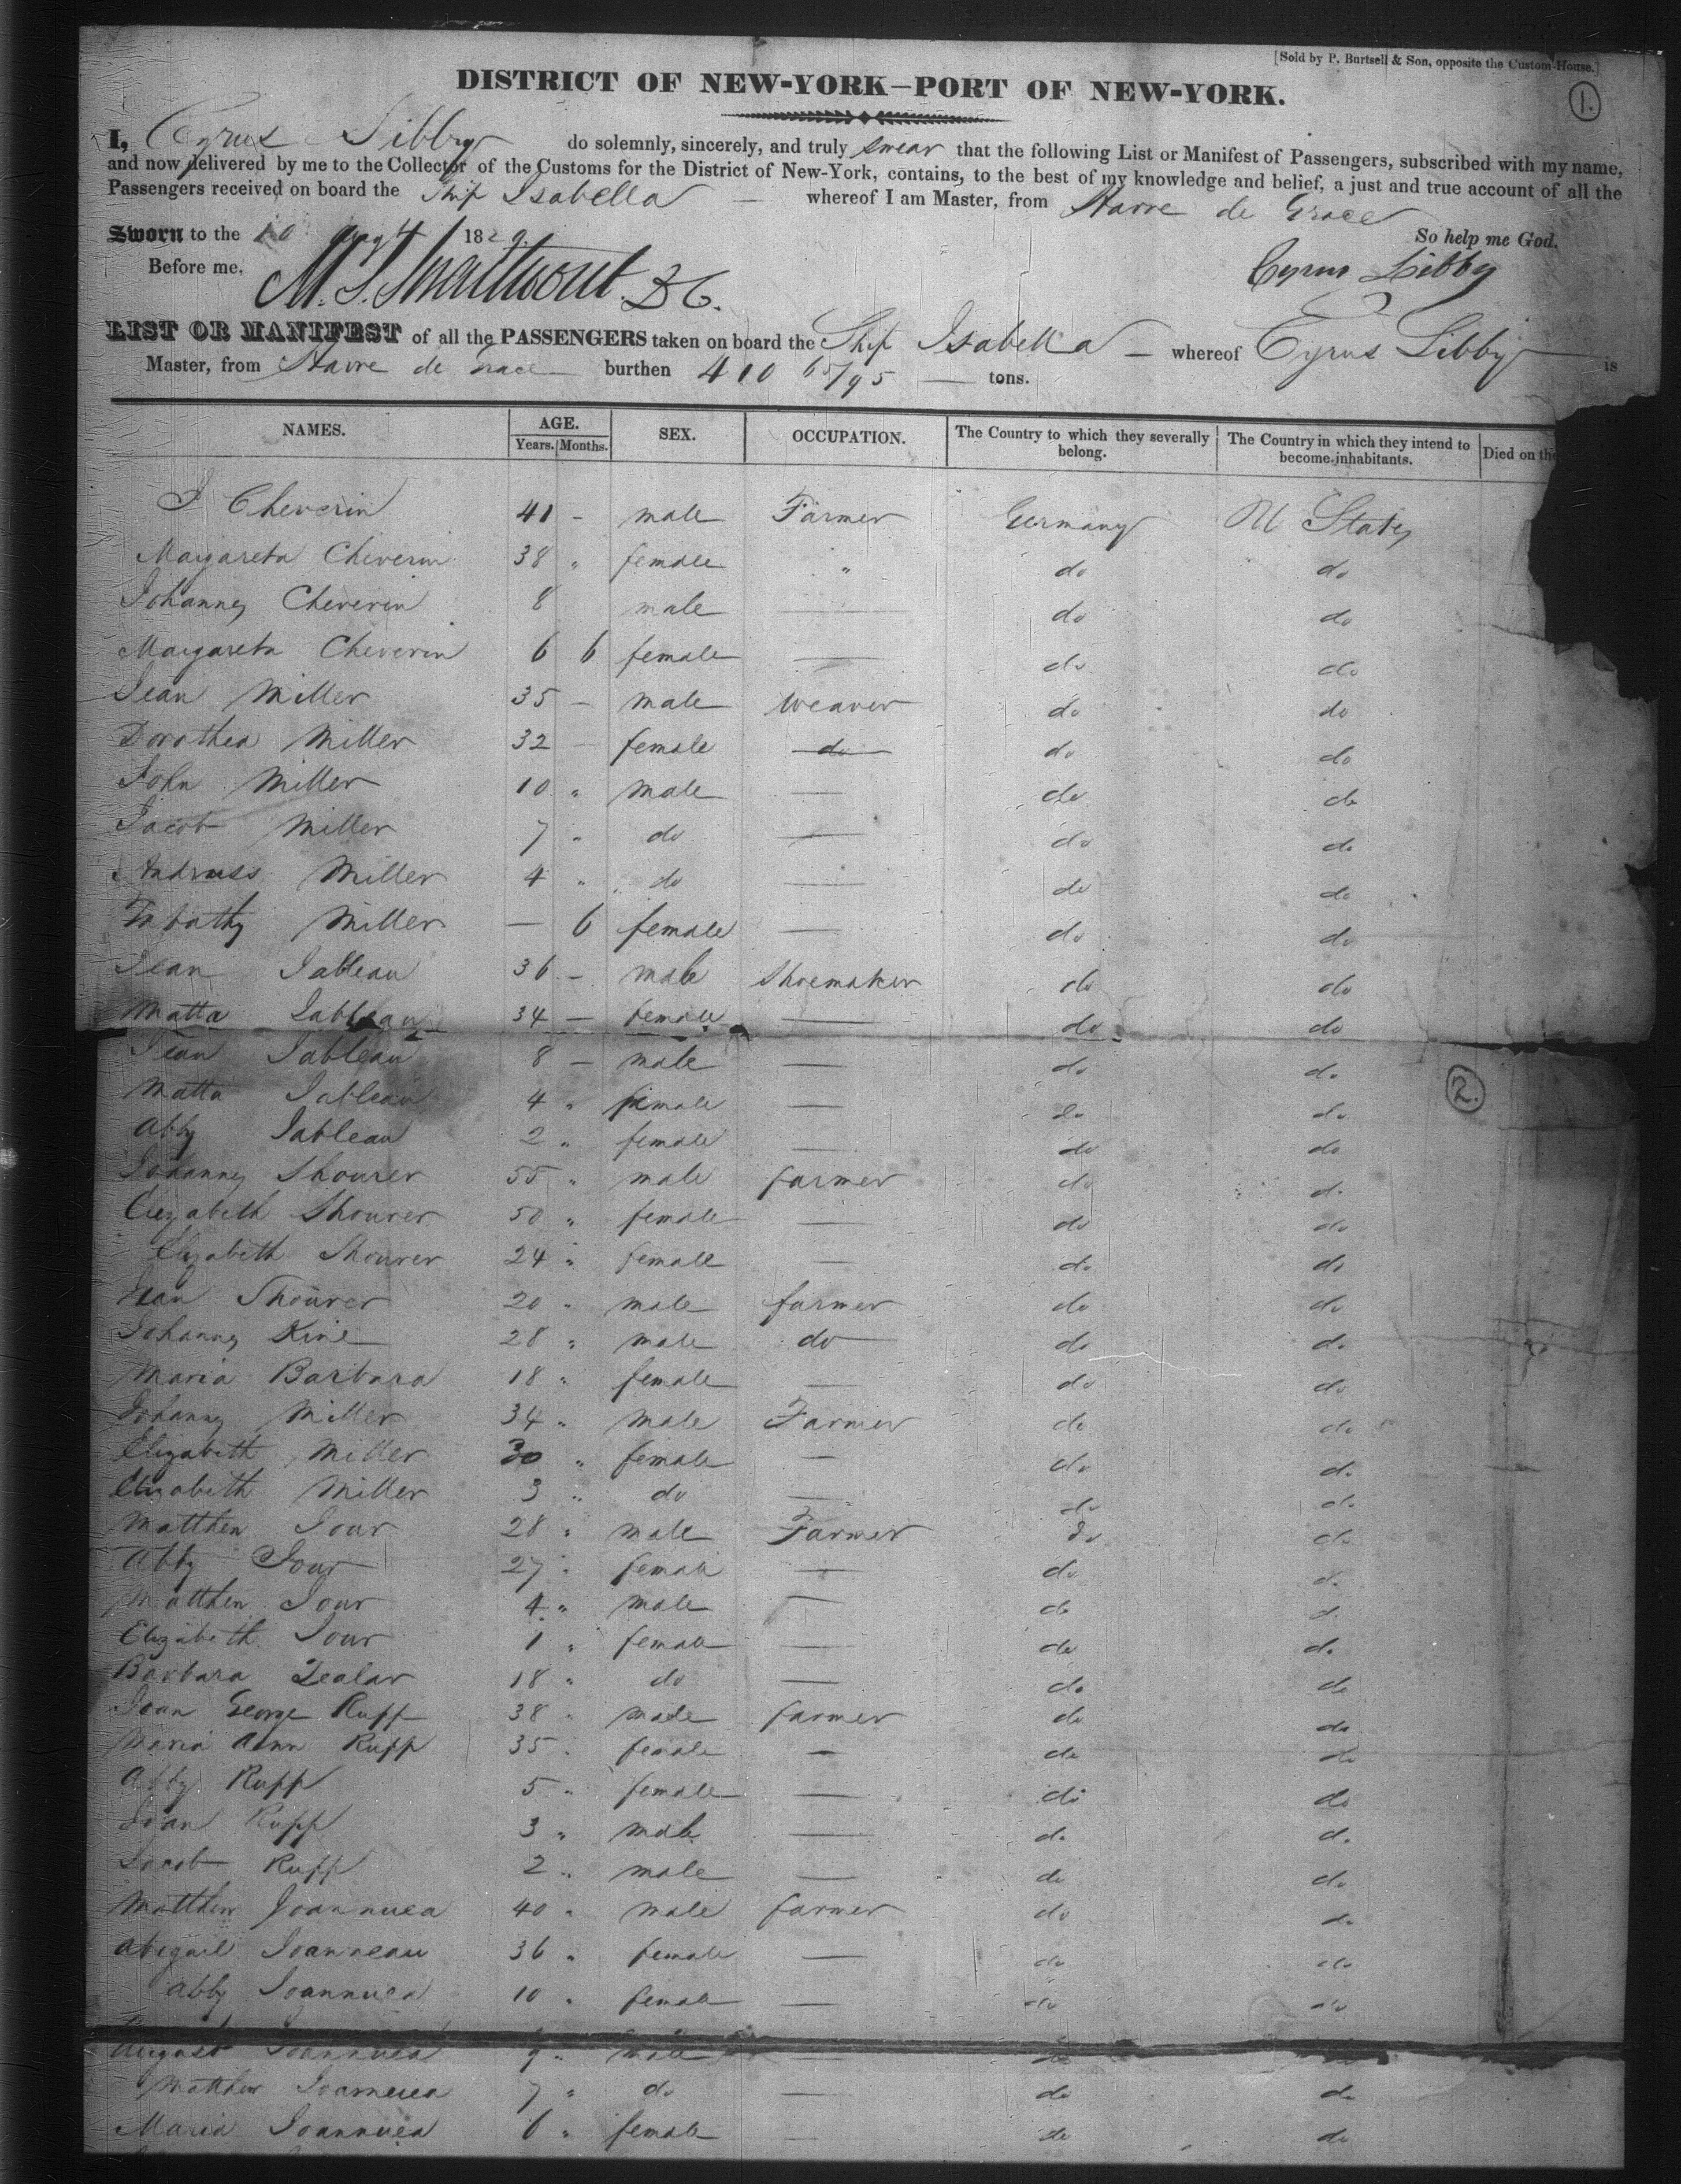 [Sold by P. Burtsell & Son, opposite the Custom-House.]
DISTRICT OF NEW-YORK—PORT OF NEW-YORK.
1.
I, Cyrus Libby do solemnly, sincerely, and truly swear that the following List or Manifest of Passengers, subscribed with my name,
and now delivered by me to the Collector of the Customs for the District of New-York, contains, to the best of my knowledge and belief, a just and true account of all the
Passengers received on board the Ship Isabella — whereof I am Master, from Havre de Grace
Sworn to the 10 1829. So help me God.
Before me, M. S. Swartwout DC. Cyrus Libby
LIST OR MANIFEST of all the PASSENGERS taken on board the Ship Isabella — whereof Cyrus Libby is
Master, from Havre de Grace burthen 410 65/95 — tons.
NAMES. AGE. SEX. OCCUPATION. The Country to which they severally belong. The Country in which they intend to become inhabitants. Died on the
Years. Months.
I Cheverin 41 - male Farmer Germany U States
Margareta Cheverin 38 " female " do do
Johannes Cheverin 8 male — do do
Margareta Cheverin 6 6 female — do do
Jean Miller 35 — male Weaver do do
Dorothea Miller 32 — female do do do
John Miller 10 " male — do do
Jacob Miller 7 " do — do do
Andruss Miller 4 " do — do do
Miller — 6 female — do do
Jean Jableau 36 — male Shoemaker do do
Matta Jableau 34 — female — do do
Jean Jableau 8 — male — do do
2.
Matta Jableau 4 " female — do do
Abby Jableau 2 " female — do do
Johannes Shourer 55 " male farmer do do
Elizabeth Shourer 50 " female — do do
Elizabeth Shourer 24 " female — do do
Jean Shourer 20 " male farmer do do
Johannes Kine 28 " male do do do
Maria Barbara 18 " female — do do
Johannes Miller 34 " male Farmer do do
Elizabeth Miller 30 " female — do do
Elizabeth Miller 3 " do — do do
Matthew Jour 28 " male Farmer do do
Abby Jour 27 " female — do do
Matthew Jour 4 " male — do do
Elizabeth Jour 1 " female — do do
Barbara Zealar 18 " do — do do
Joan George Rupp 38 " male farmer do do
Maria Ann Rupp 35 " female — do do
Abby Rupp 5 " female — do do
Joan Rupp 3 " male — do do
Jacob Rupp 2 " male — do do
Matthew Joannuea 40 " male farmer do do
Abigail Joanneau 36 " female — do do
Abby Joannuea 10 " female — do do
August Joannuea 9 " male — do do
Matthew Joannuea 7 " do — do do
Maria Joannuea 6 " female — do do